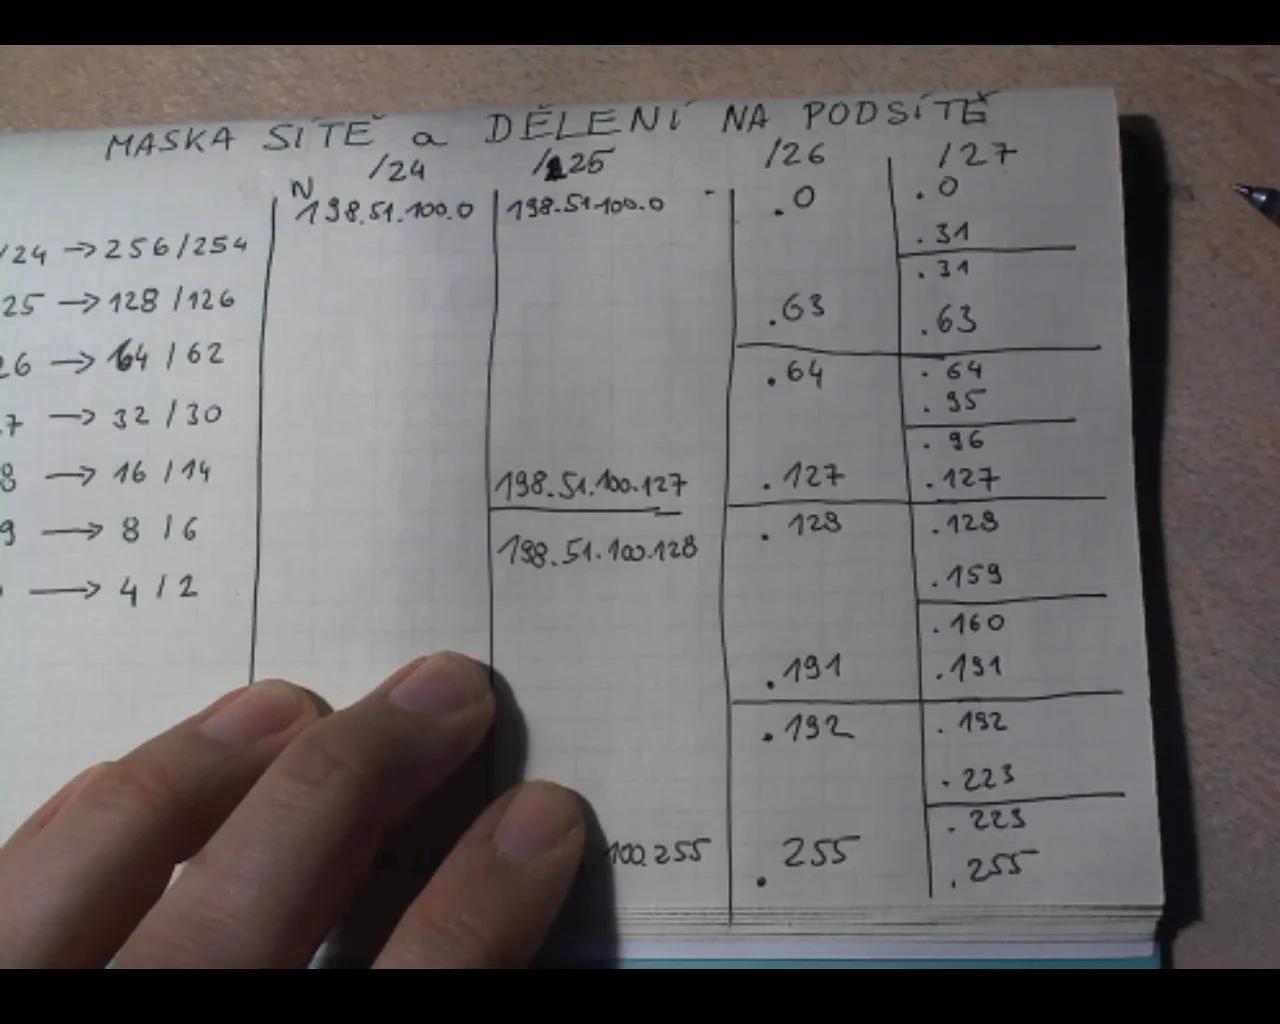 MASKA SÍTĚ a DĚLENÍ NA PODSÍTĚ
/24 /25 /26 /27
N
198.51.100.0 198.51.100.0 .0 .0
/24 → 256/254
.31
.31
25 → 128/126
.63 .63
26 → 64/62
.64 .64
.95
7 → 32/30
.96
8 → 16/14
198.51.100.127 .127 .127
9 → 8/6
198.51.100.128 .128 .128
→ 4/2
.159
.160
.191 .191
.192 .192
.223
.223
.100.255 .255 .255